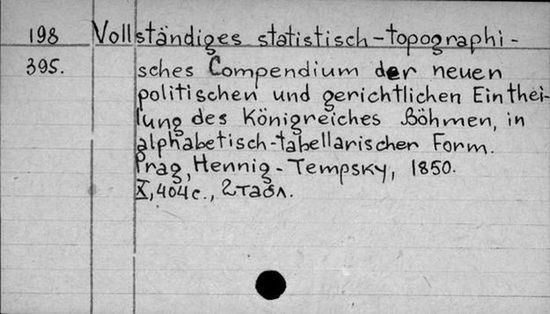 198 Vollständiges statistisch-topographi-
395. sches Compendium der neuen
politischen und gerichtlichen Einthei-
lung des Königreiches Böhmen, in
alphabetisch-tabellarischer Form.
Prag, Hennig-Tempsky, 1850.
X, 404 с., 2 табл.